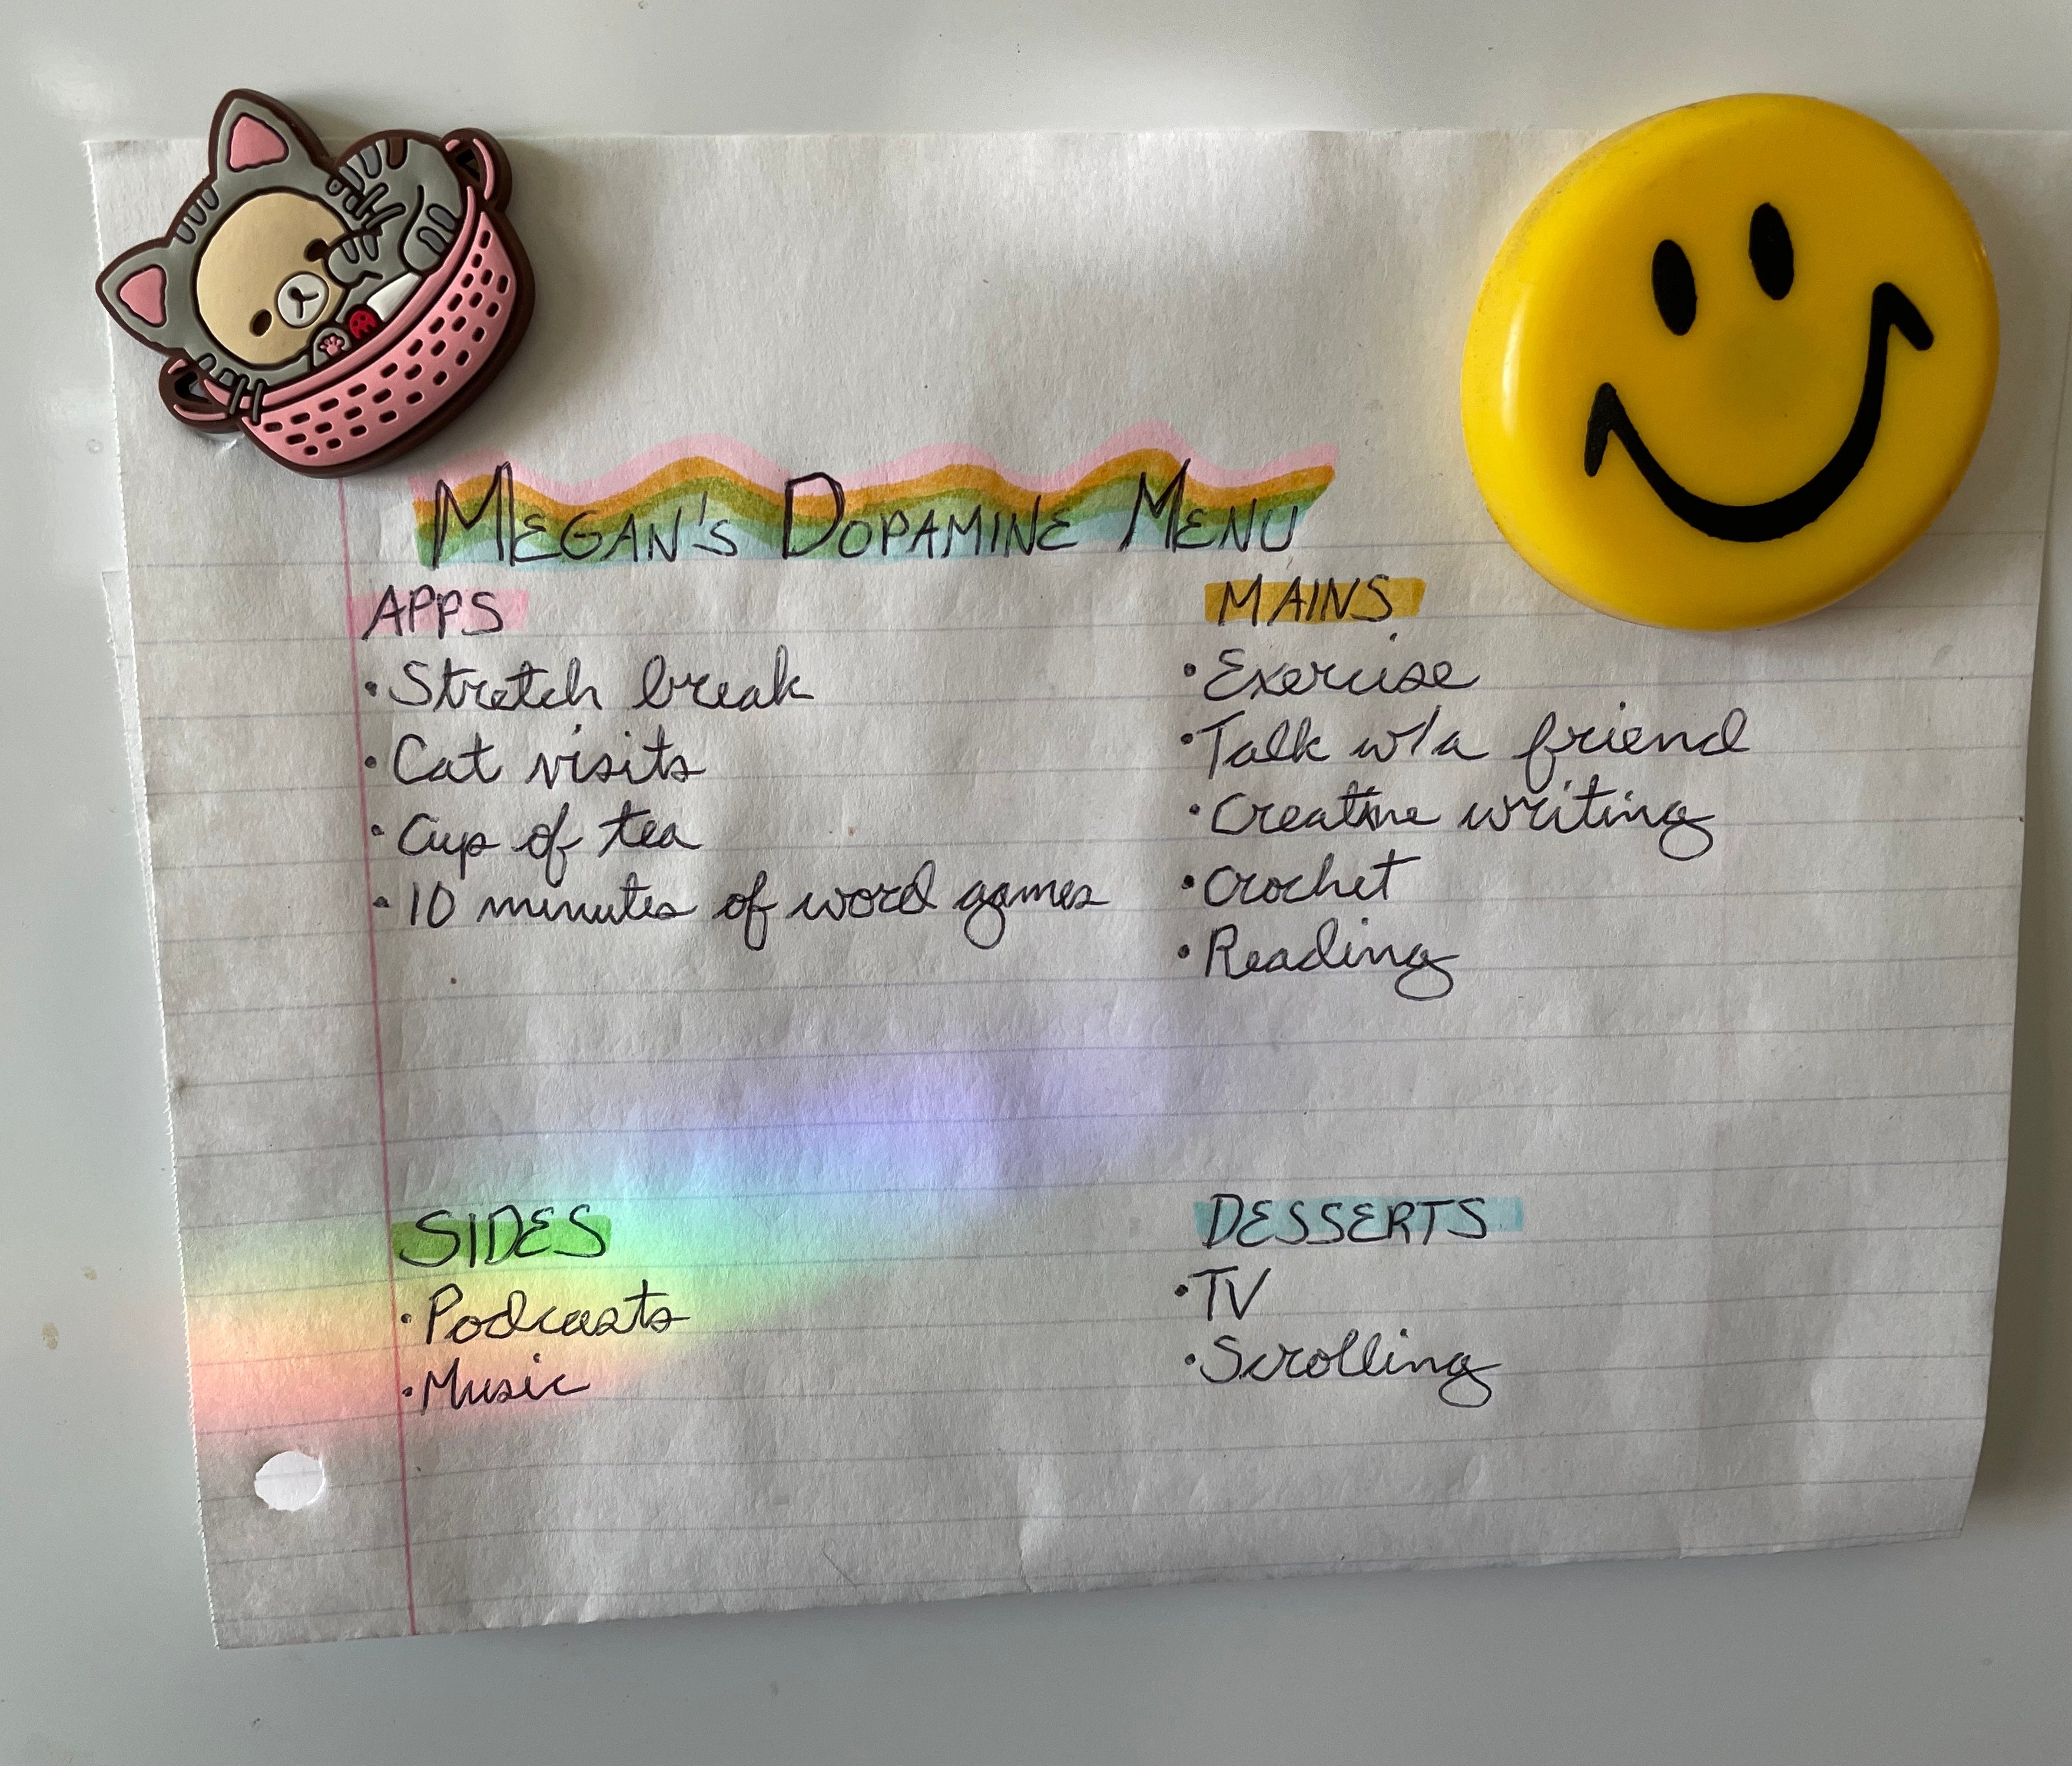 MEGAN'S DOPAMINE MENU
APPS
• Stretch break
• Cat visits
• Cup of tea
• 10 minutes of word games
MAINS
• Exercise
• Talk w/a friend
• Creative writing
• Crochet
• Reading
SIDES
• Podcasts
• Music
DESSERTS
• TV
• Scrolling